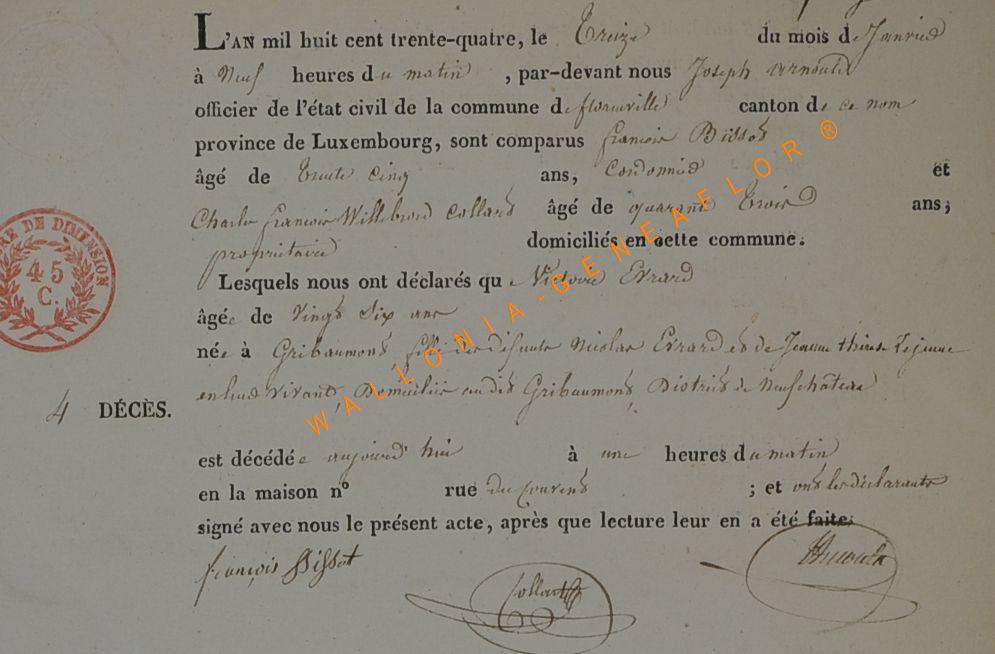 L'AN mil huit cent trente-quatre, le Treize du mois de Janvier
à Neuf heures du matin, par-devant nous Joseph Arnould
officier de l'état civil de la commune de florenville canton de ce nom
province de Luxembourg, sont comparus françois Bissot
âgé de Trente Cinq ans, Cordonnier et
Charles francois Willebrord Collard âgé de quarante Trois ans;
propriétaire domiciliés en cette commune.
Lesquels nous ont déclarés que Victoire Evrard
âgée de Vingt Six ans
née à Gribaumont, fille des défunts Nicolas Evrard et de Jeanne thérese Lejeune
en leur vivant, Domiciliés au dit Gribaumont, District de Neufchâteau
4 DÉCÈS.
est décédée aujourd'hui à une heures du matin
en la maison nº rue du Couvent ; et ont les déclarants
signé avec nous le présent acte, après que lecture leur en a été faite.
françois Bissot Collard
45
C.
DE DIMENSION
WALLONIA-GENEAFLOR®